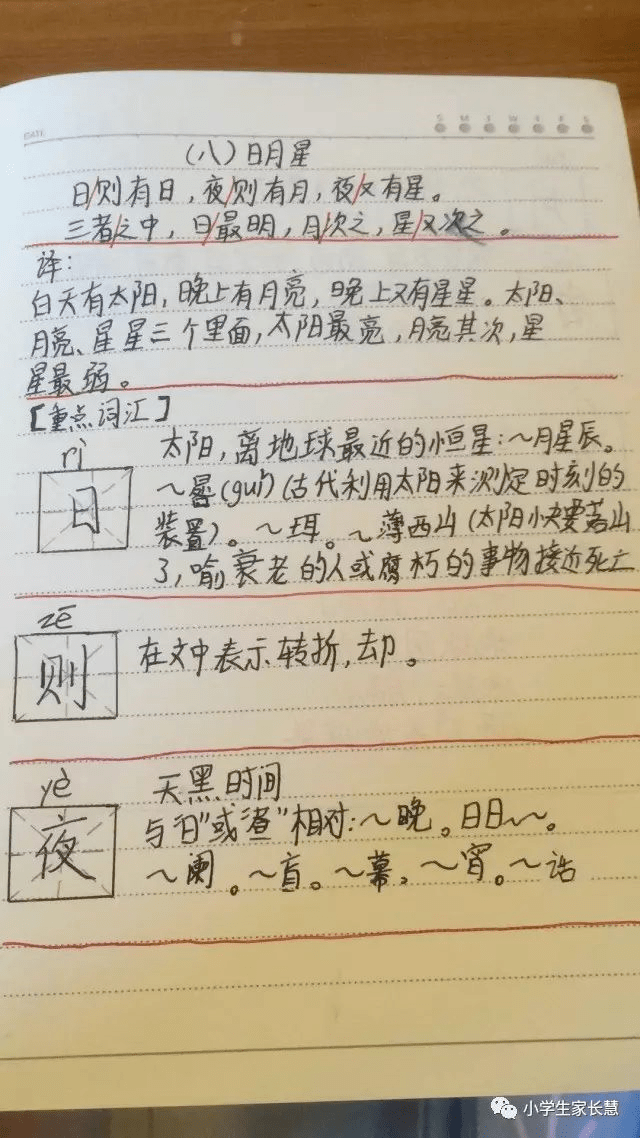 DATE
S M T W T F S
(八)日月星
日/则有日,夜/则有月,夜/又有星。
三者/之中,日/最明,月/次之,星/又次之。
译:
白天有太阳,晚上有月亮,晚上又有星星。太阳、
月亮、星星三个里面,太阳最亮,月亮其次,星
星最弱。
[重点词汇]
rì
日
太阳,离地球最近的恒星:~月星辰。
~晷(guǐ)(古代利用太阳来测定时刻的
装置)。~珥。~薄西山(太阳快要落山
了,喻衰老的人或腐朽的事物接近死亡
zé
则
在文中表示转折,却。
yè
夜
天黑时间
与"日"或"昼"相对:~晚。日日~~。
~阑。~盲。~幕。~宵。~话
小学生家长慧